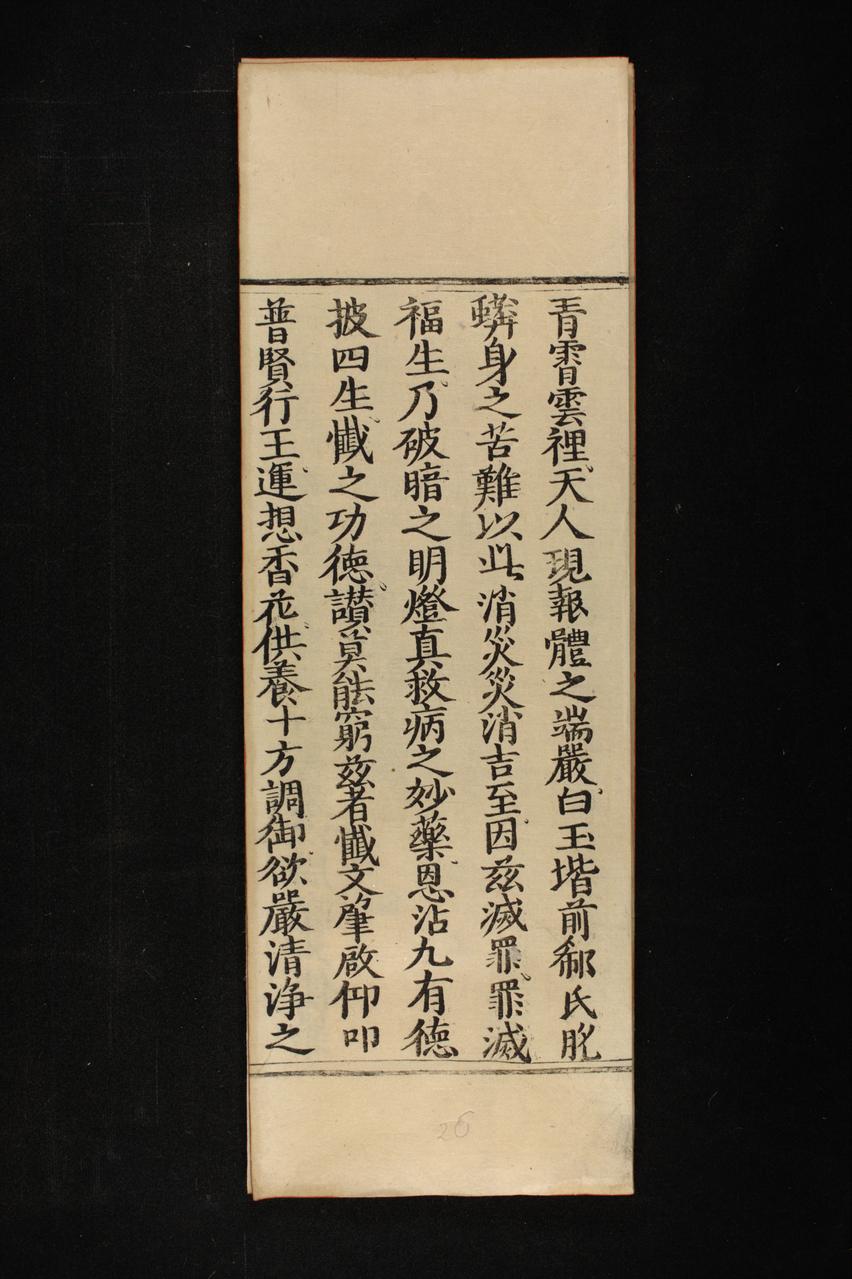 青霄雲裡天人現報體之端嚴白玉堦前郗氏脫
蟒身之苦難以此消災災消吉至因茲滅罪罪滅
福生乃破暗之明燈真救病之妙藥恩沾九有德
披四生懺之功德讃莫能窮茲者懺文肇啟仰叩
普賢行王運想香花供養十方調御欲嚴清淨之
26